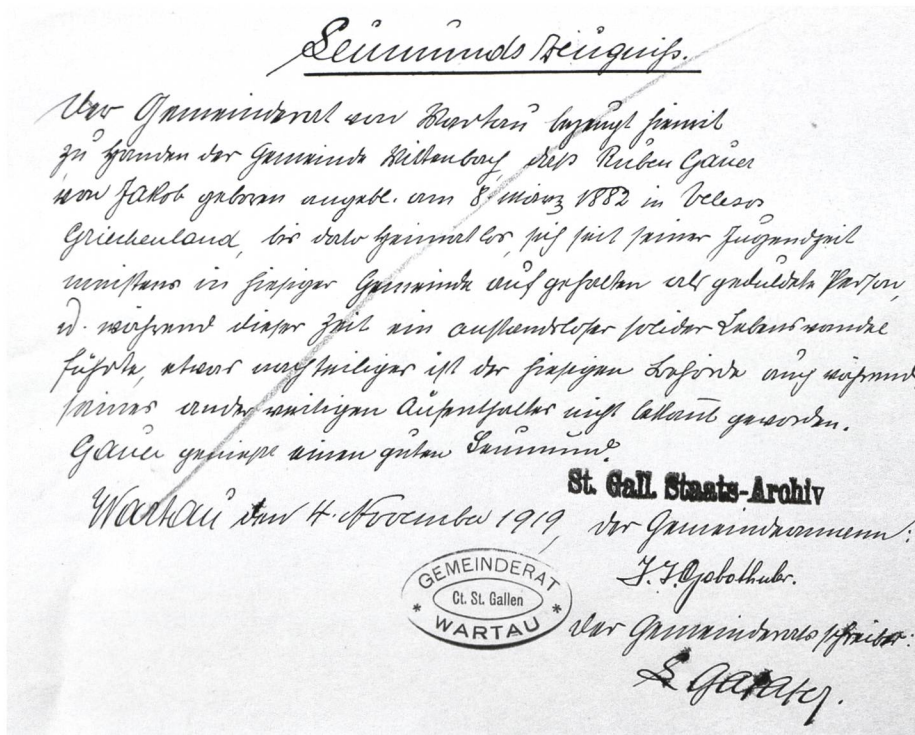 Leumunds Zeugniß.
Der Gemeinderat von Wartau bezeugt hiemit
zu Handen der Gemeinde Wittenbach, daß Ruben Gauer
von Jakob geboren angebl. am 8. März 1882 in Velesos
Griechenland, bis dato Heimatlos, sich seit seiner Jugendzeit
meistens in hiesiger Gemeinde aufgehalten als geduldete Person,
u. während dieser Zeit ein anstandsloser solider Lebenswandel
führte, etwas nachteiliges ist der hiesigen Behörde auch während
seines anderweitigen Aufenthaltes nicht bekannt geworden.
Gauer genießt einen guten Leumund.
St. Gall. Staats-Archiv
Wartau den 4. November 1919,
der Gemeindeammann:
J. J. Gabathuler.
GEMEINDERAT
Ct. St. Gallen
* WARTAU *
Der Gemeinderatsschreiber: